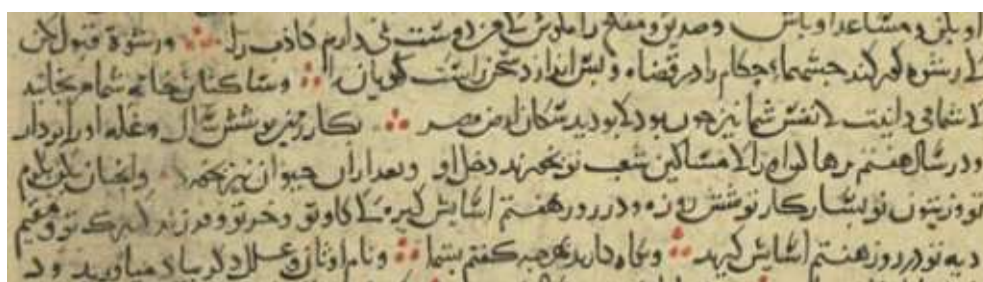 او بکن و مساعد او باش و صدیق و مفلح را مکوش که من دوست نمی دارم کاذب را ورشوة قبول مکن
که رشوه کور کند چشمهاء حکام را در قضاء و پس اندازد سخن راست کویان را وساکنان خانه شما مرنجانید
که شما می دانیت که نفس شما نیز چون بود که بودید سکان ارض مصر بکار زمین تو شش سال و غله او را بردار
و در سال هفتم رها کن او را تا مساکین شعب تو بخورند دخل او و بعد از ان حیوان نیز بخورد وانچنان بکن بکرم
تو و زیتون تو بساز کار تو شش روز و در روز هفتم اسایش کیر تا کاو تو و خر تو و فرزند کنیزک تو و مقیم
دیه تو در روز هفتم اسایش کیرند و نکاه دارید هرچه کفتم بشما و نام اوثان و ملل دکر بیاد میاورید و در